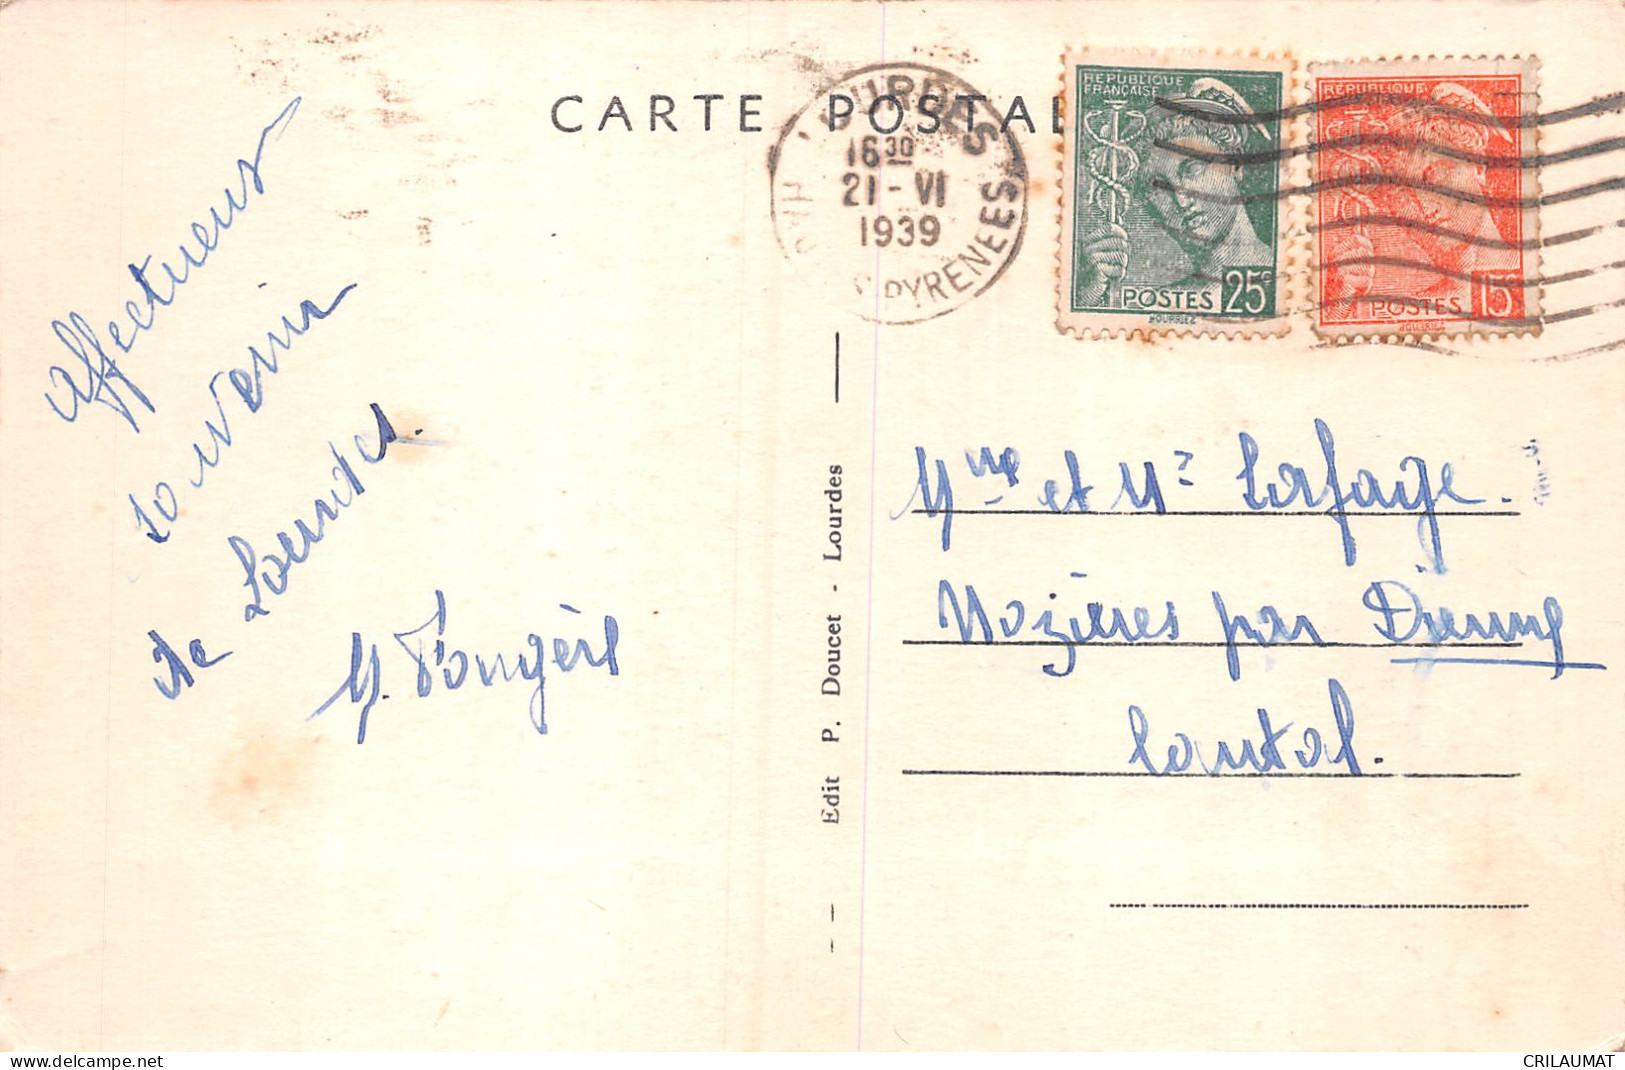 CARTE POSTAL
LOURDES
16 30
21 - VI
1939
PYRENEES
REPUBLIQUE
FRANÇAISE
POSTES 25c
HOURRIEZ
REPUBLIQUE
POSTES 15c
HOURRIEZ
Affectueux
souvenir
de Lourdes.
M. Fougère
Edit P. Doucet - Lourdes
Mme et Mr Lafage.
Nozières par Dienne
Cantal.
delcampe.net
CRILAUMAT